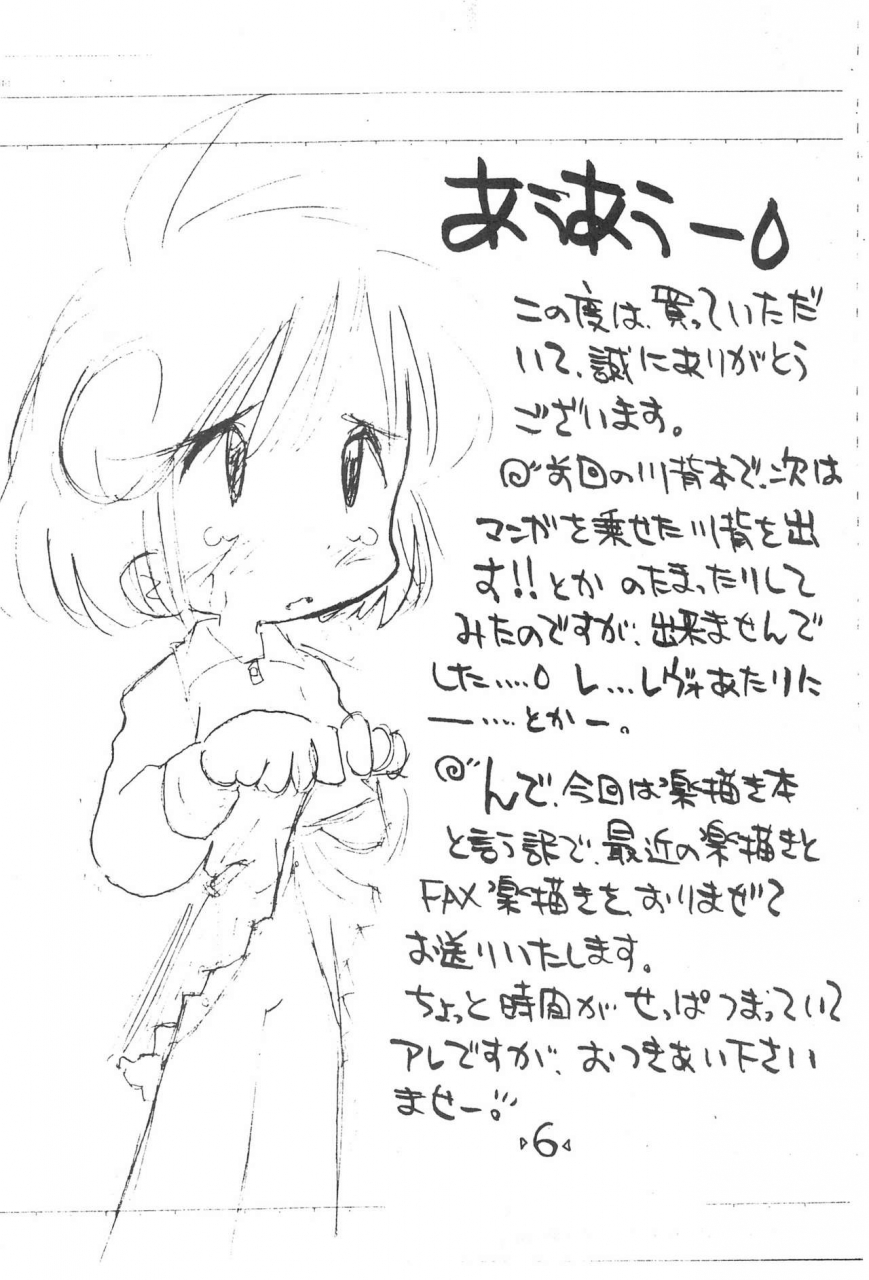 あぅあぅー
この度は、買っていただ
いて、誠にありがとう
ございます。
前回の川背本で、次は
マンガを乗せた川背を出
す!!とか のたまったりして
みたのですが、出来ませんで
した…… レ…レヴォあたりに
ー……とかー。
んで、今回は楽描き本
と言う訳で、最近の楽描きと
FAX楽描きを、おりまぜて
お送りいたします。
ちょっと時間が せっぱつまっていて
アレですが、おつきあい下さい
ませー。
6